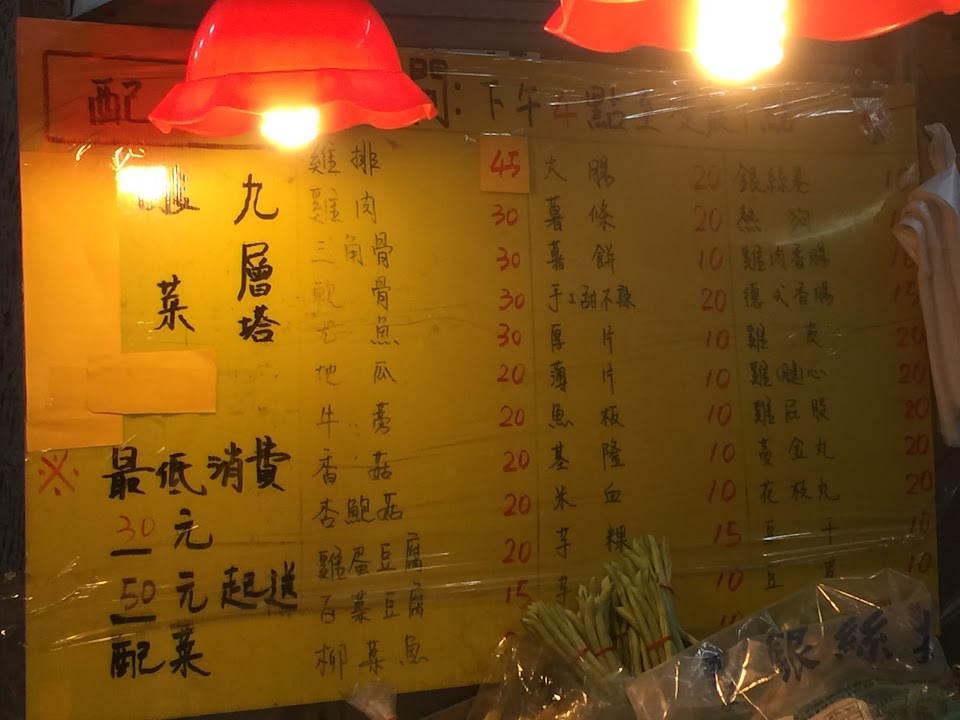 配 間:下午4點至
九層塔
酸菜
※最低消費
30元
50元起送
配菜
雞排 45
雞肉 30
三角骨 30
軟骨 30
魚 30
地瓜 20
牛蒡 20
香菇 20
杏鮑菇 20
雞蛋豆腐 20
百葉豆腐 15
柳葉魚
大腸 20
薯條 20
薯餅 10
手工甜不辣 20
厚片 10
薄片 10
魚板 10
基隆 10
米血 10
芋粿 15
芋 10
銀絲卷
熱狗
雞肉香腸
德式香腸 15
雞皮 20
雞(腱)心 20
雞屁股 20
黃金丸 20
花枝丸 20
豆干 10
豆 10
銀絲